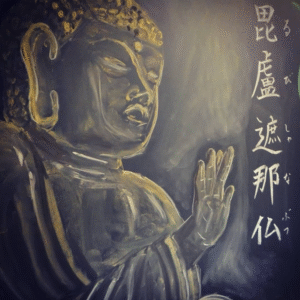 毘盧遮那仏
るびしゃなぶつ